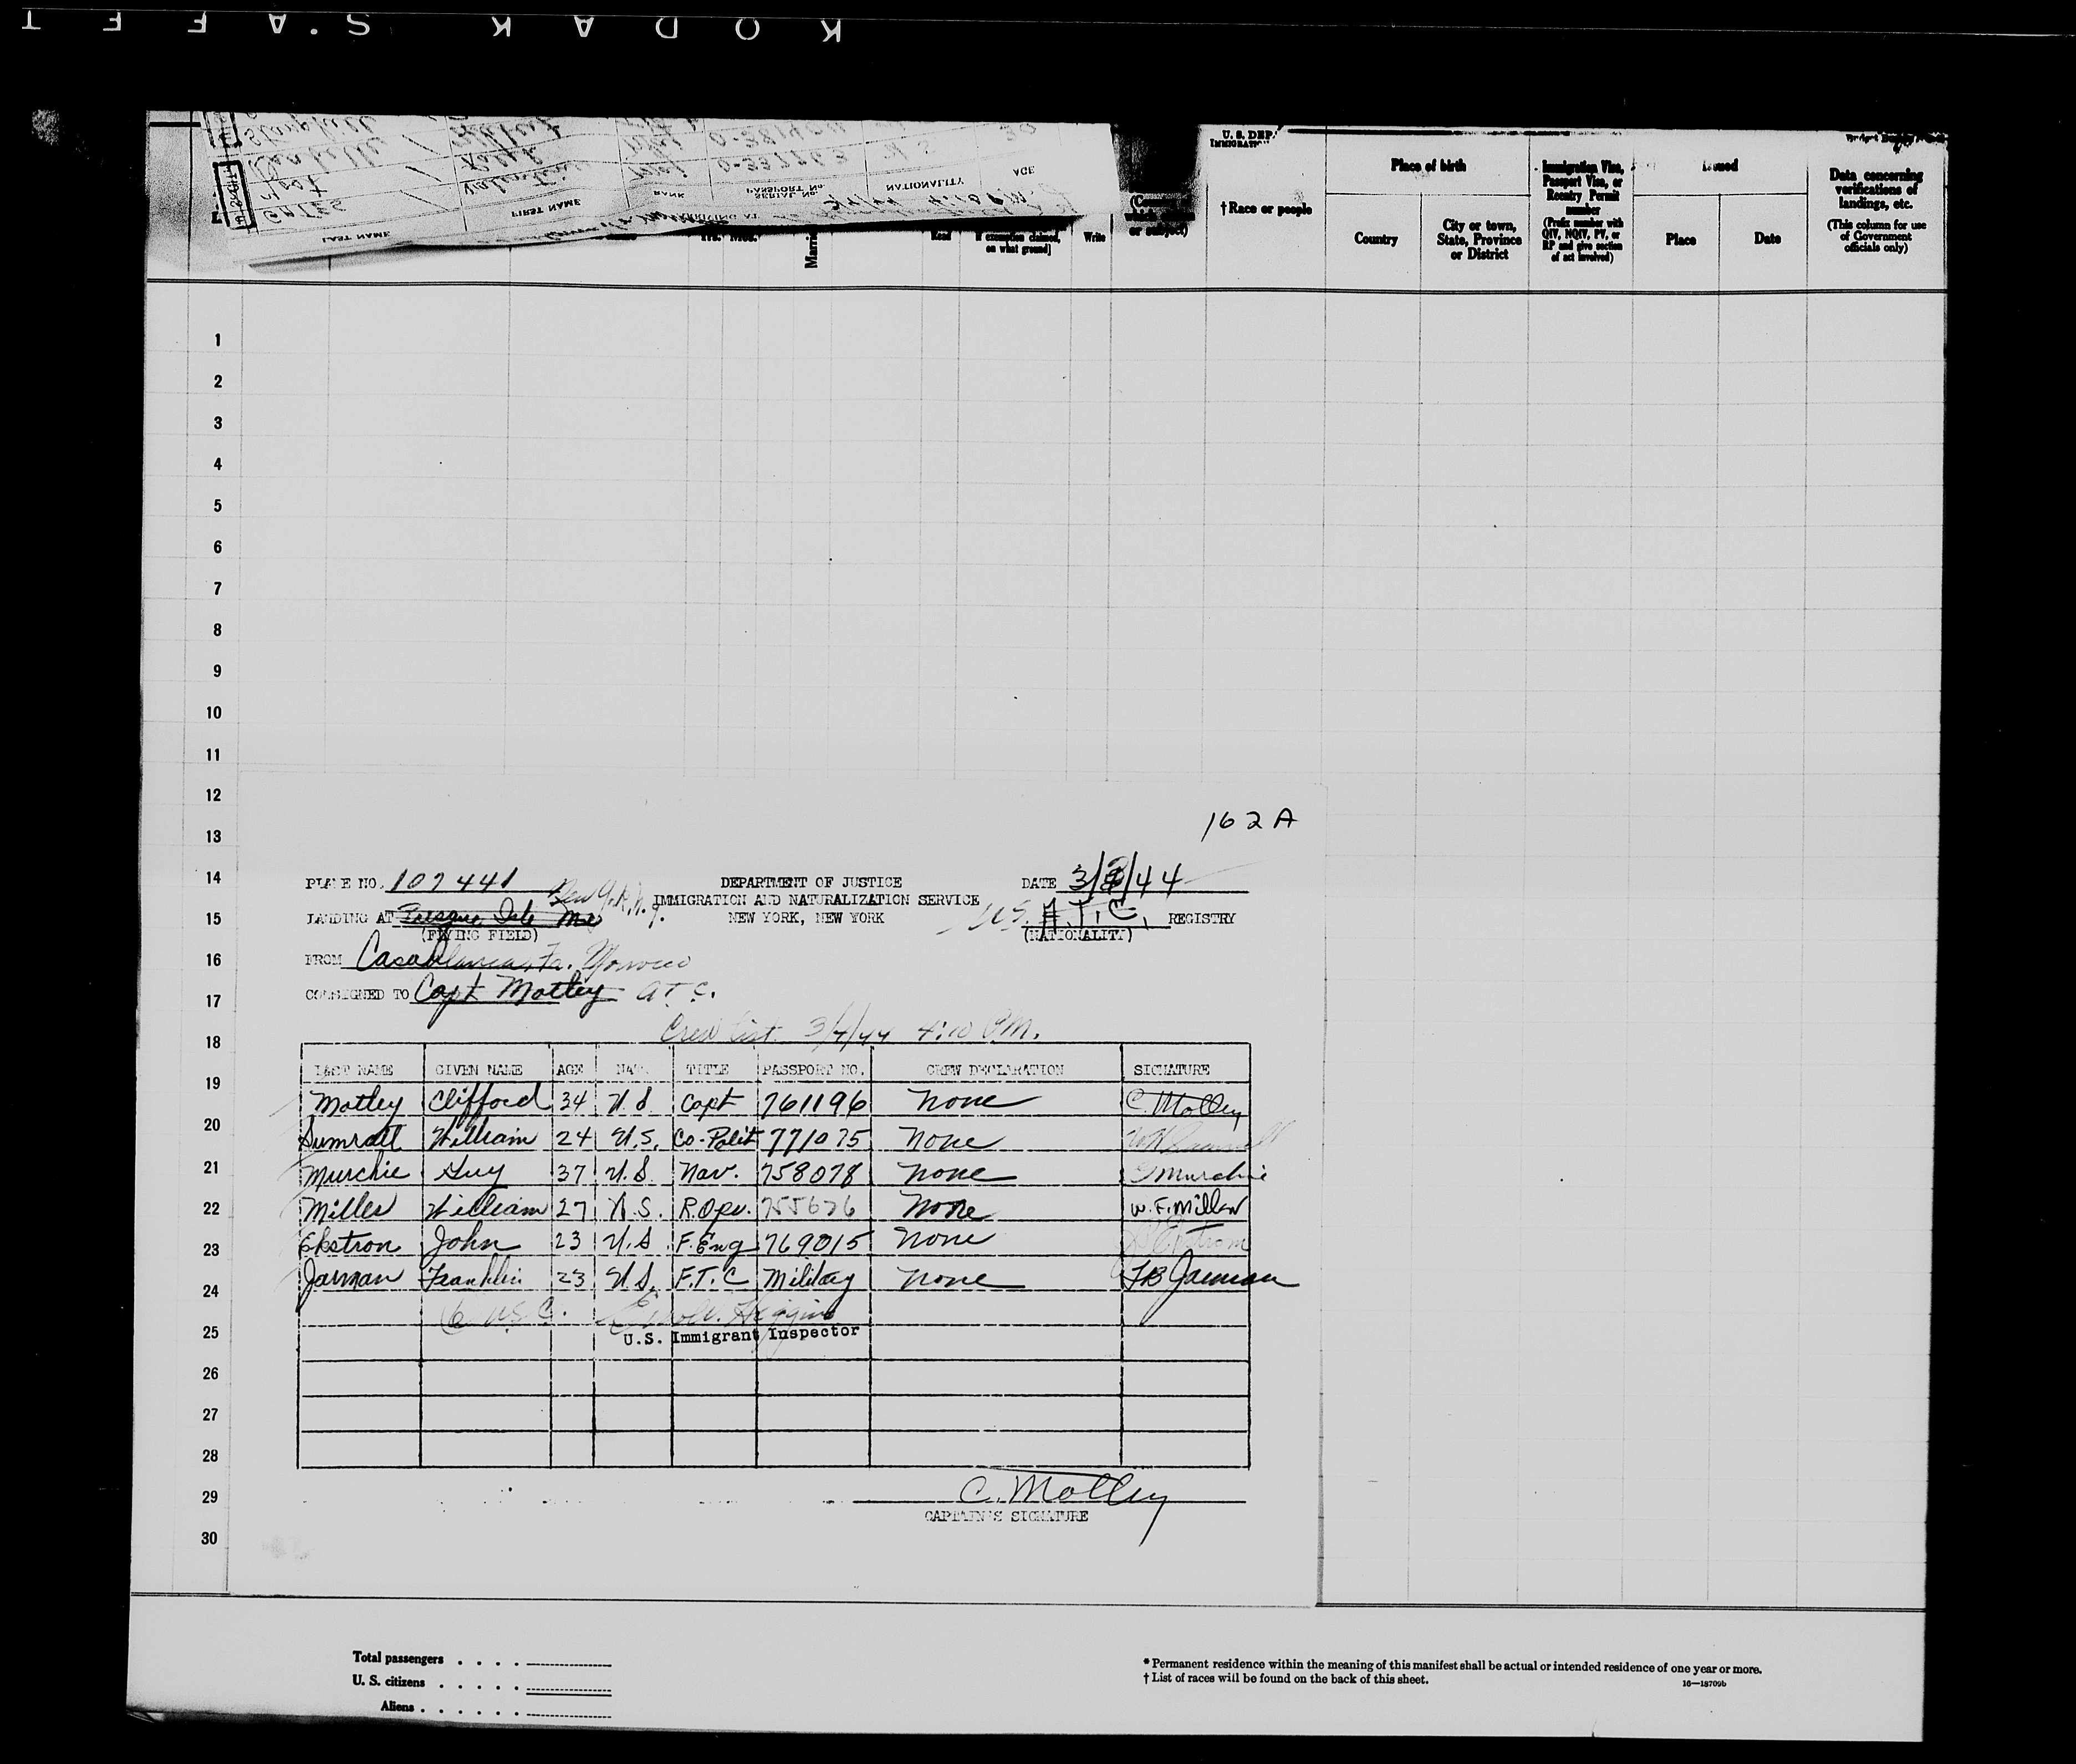 KODAK S.AFET
LAST NAME FIRST NAME RANK SERIAL NO. PASSPORT NO. NATIONALITY AGE
GATES Valentine
Ralph 0-337263 U S
ARRIVING AT 4:10 P.M.
U. S. DEP.
IMMIGRATI
† Race or people
Place of birth
Country
City or town, State, Province or District
Immigration Visa, Passport Visa, or Reentry Permit number
(Prefix number with QIV, NQIV, PV, or RP and give section of act involved)
Issued
Place
Date
Data concerning verifications of landings, etc.
(This column for use of Government officials only)
or subject)
Read
if exemption claimed, on what ground]
Write
1
2
3
4
5
6
7
8
9
10
11
12
13
14
15
16
17
18
19
20
21
22
23
24
25
26
27
28
29
30
162 A
PLANE NO. 107441 DEPARTMENT OF JUSTICE DATE 3/4/44
IMMIGRATION AND NATURALIZATION SERVICE
LANDING AT Presque Isle Me NEW YORK, NEW YORK U.S. A.T.C. REGISTRY
(FLYING FIELD) (NATIONALITY)
FROM Casablanca, Fr. Morocco
CONSIGNED TO Capt Motley A.T.C.
Crew list 3/4/44 4:10 P.M.
LAST NAME GIVEN NAME AGE NAT. TITLE PASSPORT NO. CREW DECLARATION SIGNATURE
Motley Clifford 34 U.S. Capt 761196 None C. Motley
Sumrall William 24 U.S. Co-Polit 771075 None
Murchie Guy 37 U.S. Nav. 758078 None G Murchie
Miller William 27 U.S. R.Opr. 755676 None W.F. Miller
Ekstron John 23 U.S. F.Eng 769015 None
Jarman Franklin 23 U.S. F.T.C Military None FB Jarman
6 U.S.C. Higgins
U.S. Immigrant Inspector
C. Motley
CAPTAIN'S SIGNATURE
Total passengers . . . .
U. S. citizens . . . . .
Aliens . . . . . .
* Permanent residence within the meaning of this manifest shall be actual or intended residence of one year or more.
† List of races will be found on the back of this sheet.
16—18709b